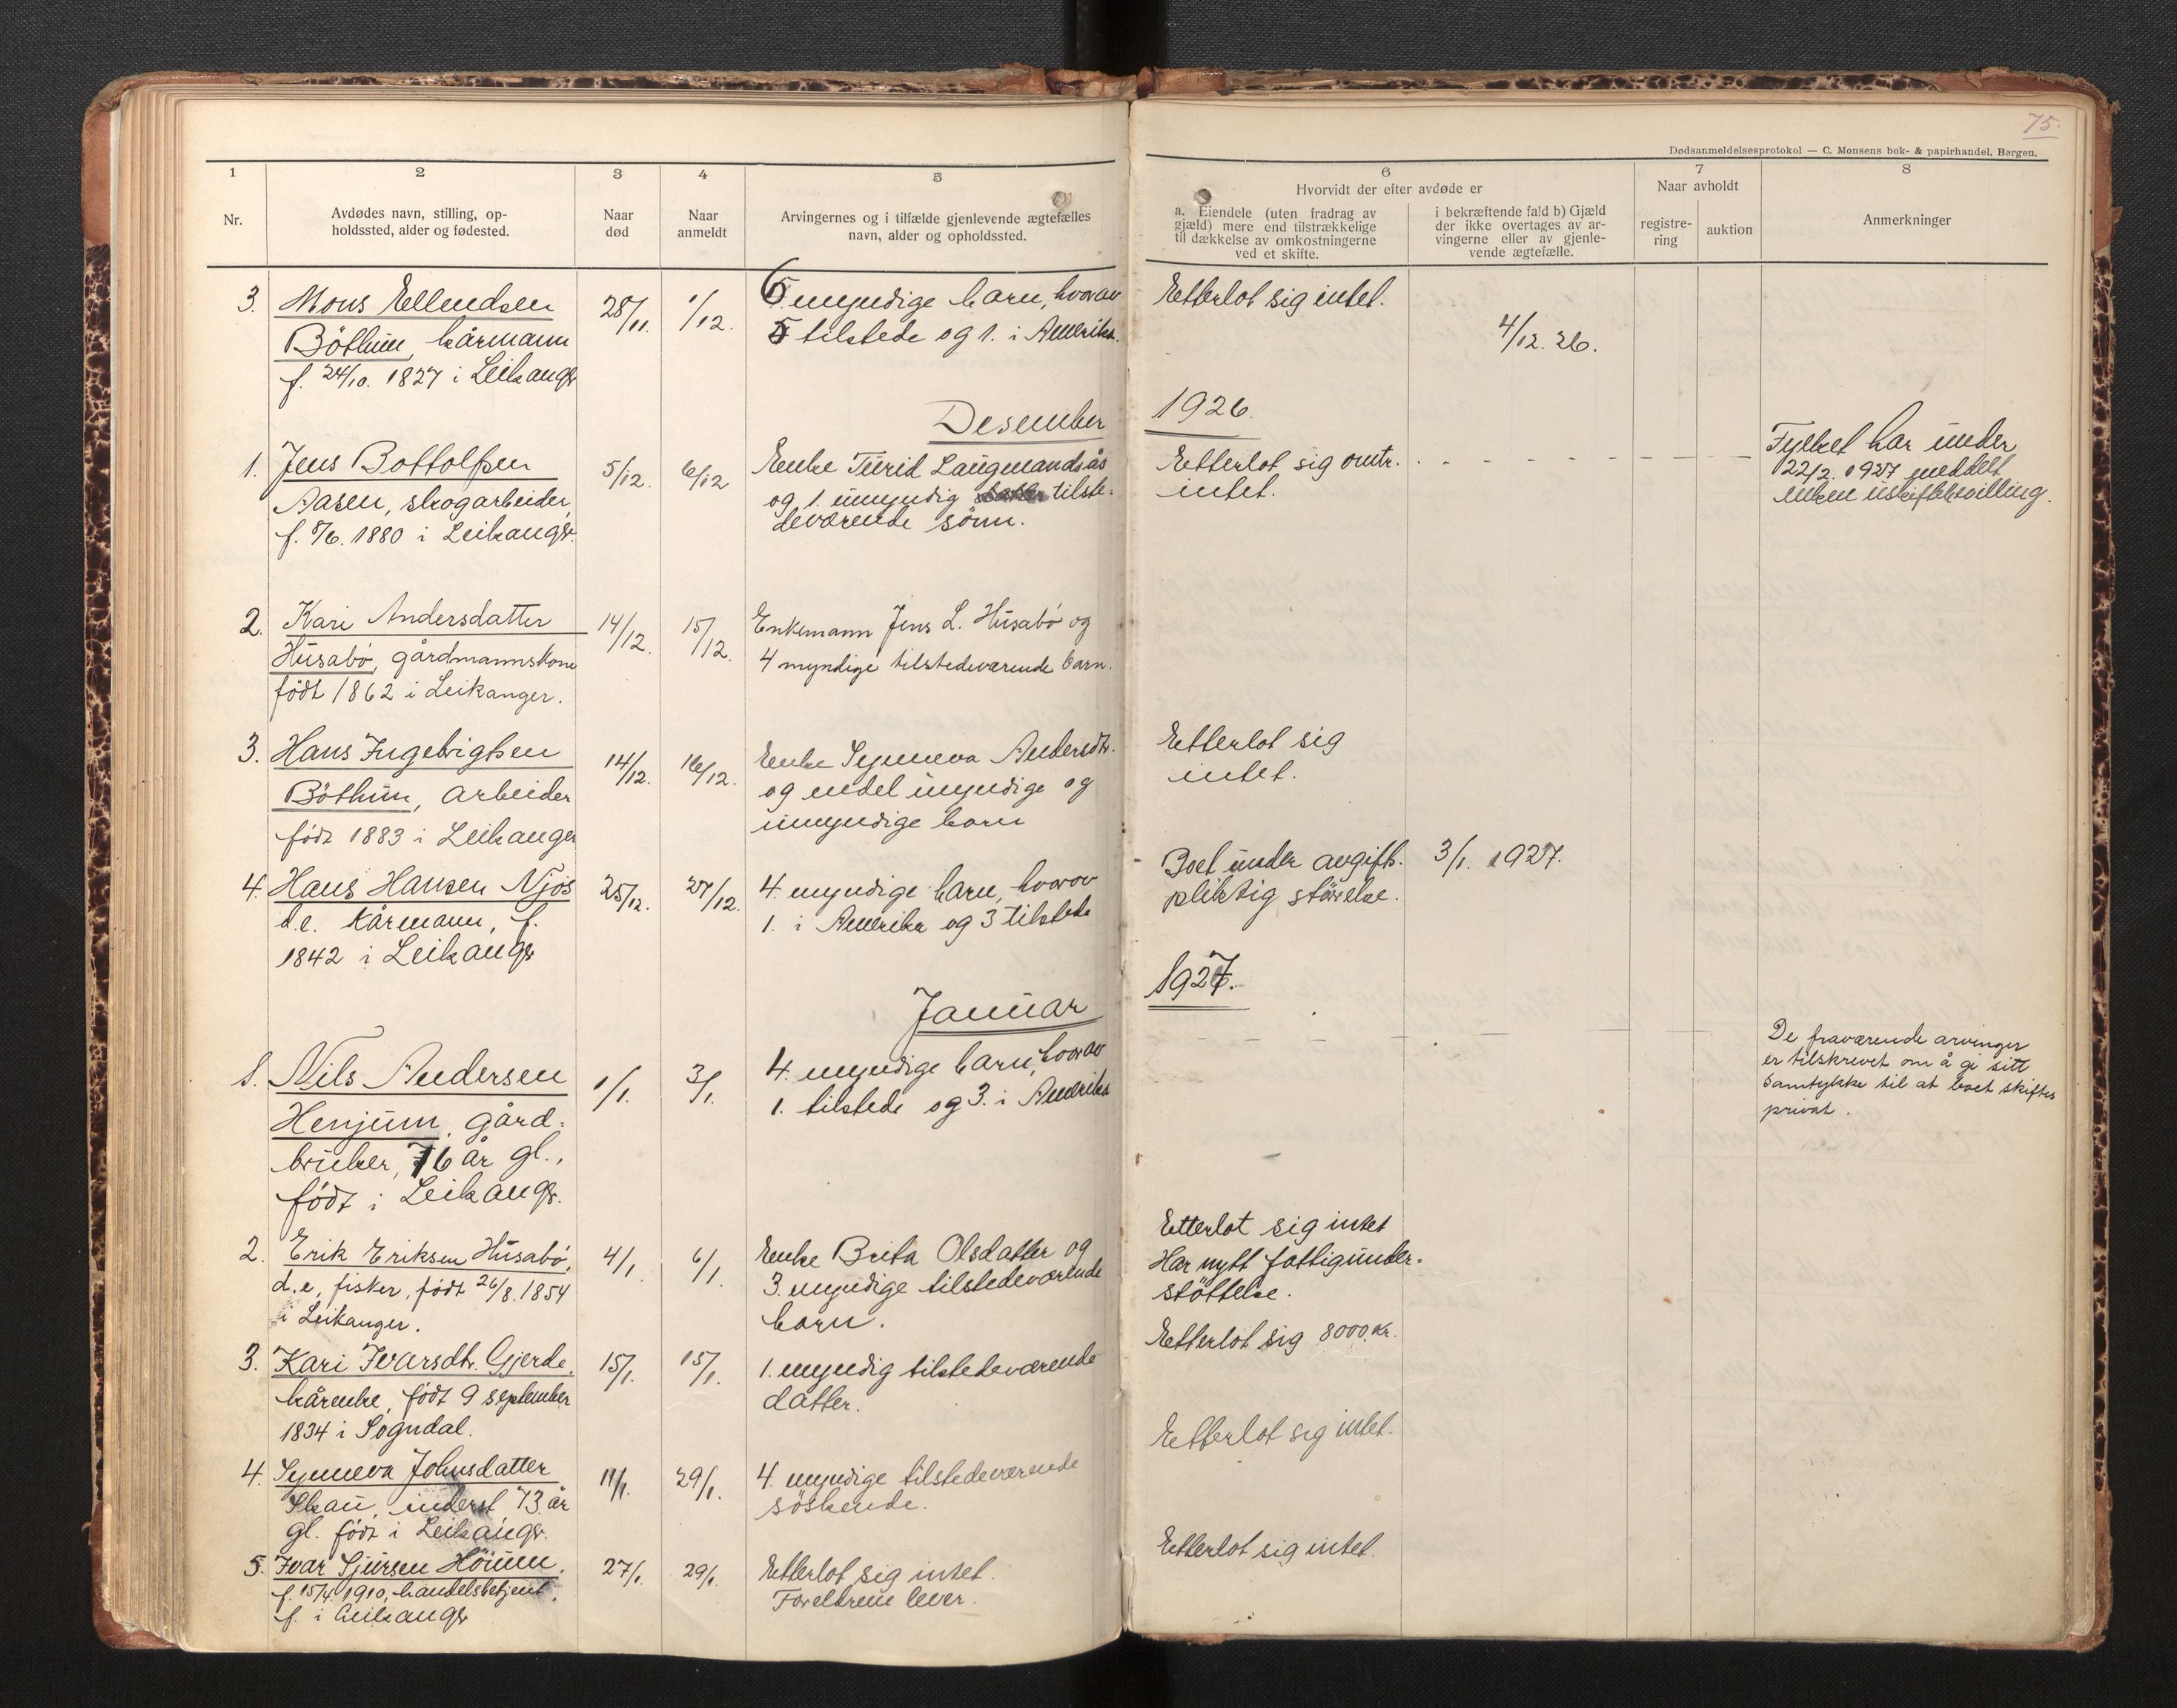 75.
Dødsanmeldelsesprotokol — C. Monsens bok- & papirhandel, Bergen.
1 2 3 4 5 6 7 8
Nr.
Avdødes navn, stilling, op-
holdssted, alder og fødested.
Naar
død
Naar
anmeldt
Arvingernes og i tilfælde gjenlevende ægtefælles
navn, alder og opholdssted.
Hvorvidt der efter avdøde er
a. Eiendele (uten fradrag av
gjæld) mere end tilstrækkelige
til dækkelse av omkostningerne
ved et skifte.
i bekræftende fald b) Gjæld
der ikke overtages av ar-
vingerne eller av gjenle-
vende ægtefælle.
Naar avholdt
registre-
ring
auktion
Anmerkninger
3. Mons Ellendsen
Böthun, kårmann
f. 24/10. 1827 i Leikangr
28/11. 1/12.
6 myndige barn, hvorav
5 tilstede og 1. i Amerika.
Etterlot sig intet.
4/12. 26.
Desember 1926.
1. Jens Bottolfsen
Aasen, skogarbeider,
f. 8/6. 1880 i Leikangr.
5/12. 6/12
Enke Turid Laugmandsås
og 1. umyndig tilste-
deværende sönn.
Etterlot sig omtr.
intet.
Fylket har under
22/2. 1927 meddelt
enken uskiftebevilling.
2. Kari Andersdatter
Husabö, gårdmannskone
födt 1862 i Leikanger.
14/12. 15/12.
Enkemann Jens L. Husabö og
4 myndige tilstedeværende barn.
3. Hans Ingebrigtsen
Böthun, arbeider
födt 1883 i Leikanger
14/12. 16/12.
Enke Synneva Andersdtr.
og endel myndige og
umyndige barn
Etterlot sig
intet.
4. Hans Hansen Njös
d.e. kårmann, f.
1842 i Leikangr
25/12. 27/12.
4 myndige barn, hvorav
1. i Amerika og 3 tilstede
Boet under avgifts-
pliktig störrelse.
3/1. 1927.
Januar 1927.
1. Nils Andersen
Henjum, gård-
bruker, 76 år gl.,
födt i Leikangr.
1/1. 3/1.
4. myndige barn, hvorav
1. tilstede og 3. i Amerika
De fraværende arvinger
er tilskrevet om å gi sitt
samtykke til at boet skiftes
privat.
2. Erik Eriksen Husabö,
d.e, fisker, födt 26/8. 1854
i Leikanger.
4/1. 6/1.
Enke Brita Olsdatter og
3. myndige tilstedeværende
barn.
Etterlot sig intet
Har nytt fattigunder-
stöttelse.
3. Kari Ivarsdtr. Gjerde,
kårenke, födt 9 september
1834 i Sogndal.
15/1. 15/1.
1. myndig tilstedeværende
datter.
Etterlot sig 8000,kr.
4. Synneva Johnsdatter
Skau, inderst 73 år
gl. födt i Leikangr.
11/1. 29/1.
4. myndige tilstedeværende
söskende.
Etterlot sig intet.
5. Ivar Sjursen Hörum.
f. 15/4. 1910, handelsbetjent,
f. i Leikangr
27/1. 29/1.
Etterlot sig intet.
Foreldrene lever.
Etterlot sig intet.